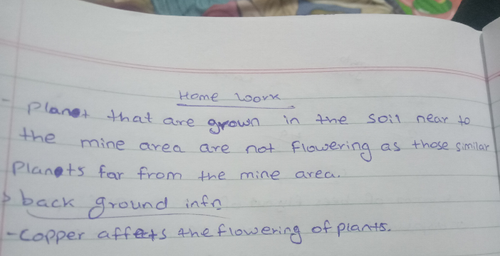 Home Work
- Planet that are grown in the soil near to
the mine area are not flowering as those similar
Planets far from the mine area.
> back ground info
- Copper affects the flowering of plants.